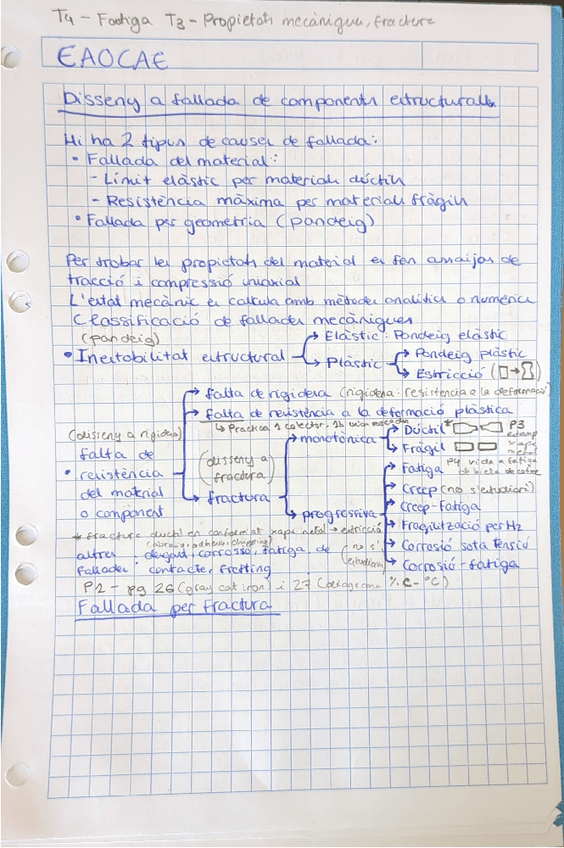 T4 - Fatiga T3 - Propietats mecàniques, fractura
EAOCAE
Disseny a fallada de components estructurals
Hi ha 2 tipus de causes de fallada:
• Fallada del material:
- Límit elàstic per materials dúctils
- Resistència màxima per materials fràgils
• Fallada per geometria (pandeig)
Per trobar les propietats del material es fan assaijos de
tracció i compressió uniaxial
L'estat mecànic es calcula amb mètodes analítics o numèrics
Classificació de fallades mecàniques
(pandeig)
• Inestabilitat estructural
Elàstic: Pandeig elàstic
Plàstic
Pandeig plàstic
Estricció
(disseny a rigidesa)
• falta de
resistència
del material
o component
falta de rigidesa (rigidesa-resistència a la deformació)
falta de resistència a la deformació plàstica
Practica 1 colector, 1b
(disseny a
fractura)
fractura
monotònica
Dúctil* P3
estamp
xapa
metal
Fràgil
progressiva
Fatiga P4 vida a fatiga
Creep (no s'estudiarà)
Creep-Fatiga
Fragilització per H2
Corrosió sota tensió
Corrosió-fatiga
(no s'
estudiarà)
* fractura ductil en conformat xapa metal → estricció
altres
fallades: desgast, corrosió, fatiga de
contacte, fretting
P2 - pg 26 (gray cast iron) i 27 (diagrama %C-ºC)
Fallada per fractura